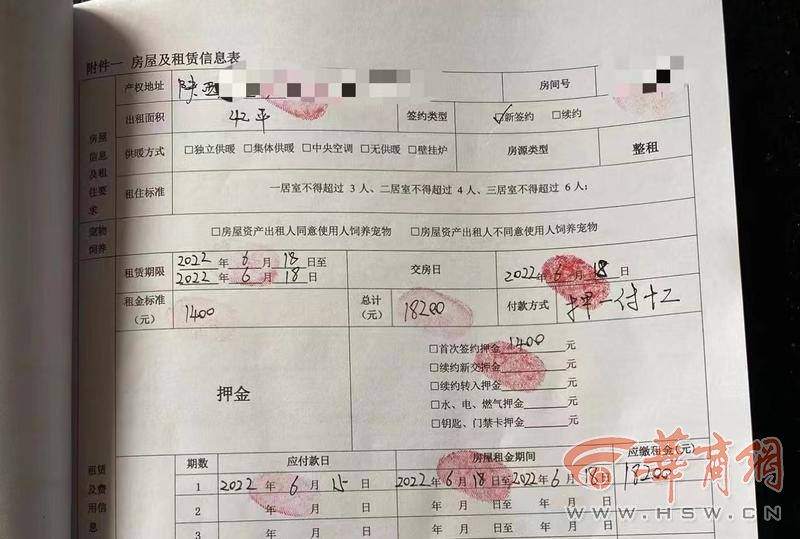 附件一 房屋及租赁信息表
产权地址 陕西 房间号
出租面积 42平 签约类型 ☑新签约 □续约
房屋信息及租住要求
供暖方式 □独立供暖 □集体供暖 □中央空调 □无供暖 □壁挂炉 房源类型 整租
租住标准 一居室不得超过 3 人、二居室不得超过 4 人、三居室不得超过 6 人;
宠物饲养 □房屋资产出租人同意使用人饲养宠物 □房屋资产出租人不同意使用人饲养宠物
租赁期限 2022 年 6 月 18 日至
2022 年 6 月 18 日
交房日 2022 年 6 月 18 日
租金标准(元) 1400 总计(元) 18200 付款方式 押一付十二
押金
□首次签约押金 1400 元
□续约新交押金 元
□续约转入押金 元
□水、电、燃气押金 元
□钥匙、门禁卡押金 元
租赁及费用信息
期数 应付款日 房屋租金期间 应缴租金(元)
1 2022 年 6 月 15 日 2022 年 6 月 18 日至 2022 年 6 月 18 日 13200
2 年 月 日 年 月 日至 年 月 日
3 年 月 日 年 月 日至 年 月 日
華商網
WWW.HSW.CN